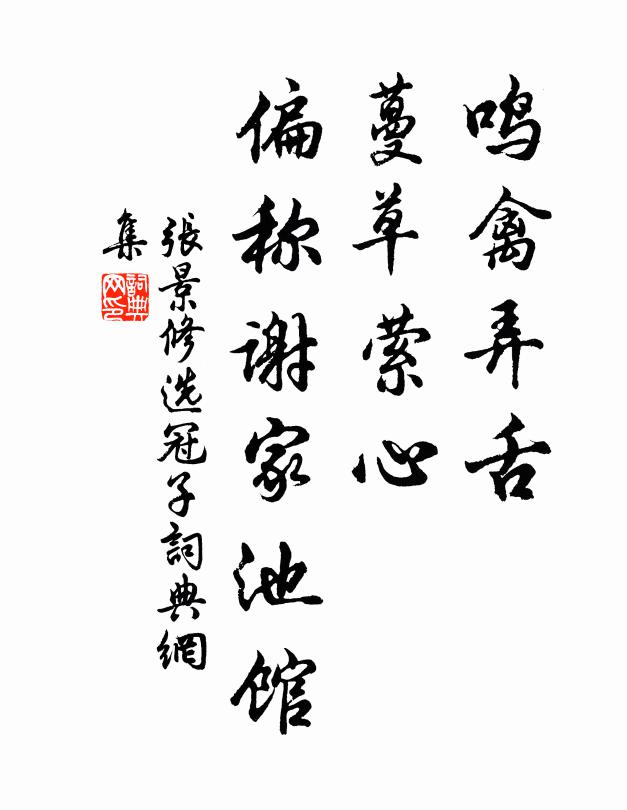 鸣禽弄舌
蔓草萦心
偏称谢家池馆
張景修选冠子詞典網
集
詞典
网印